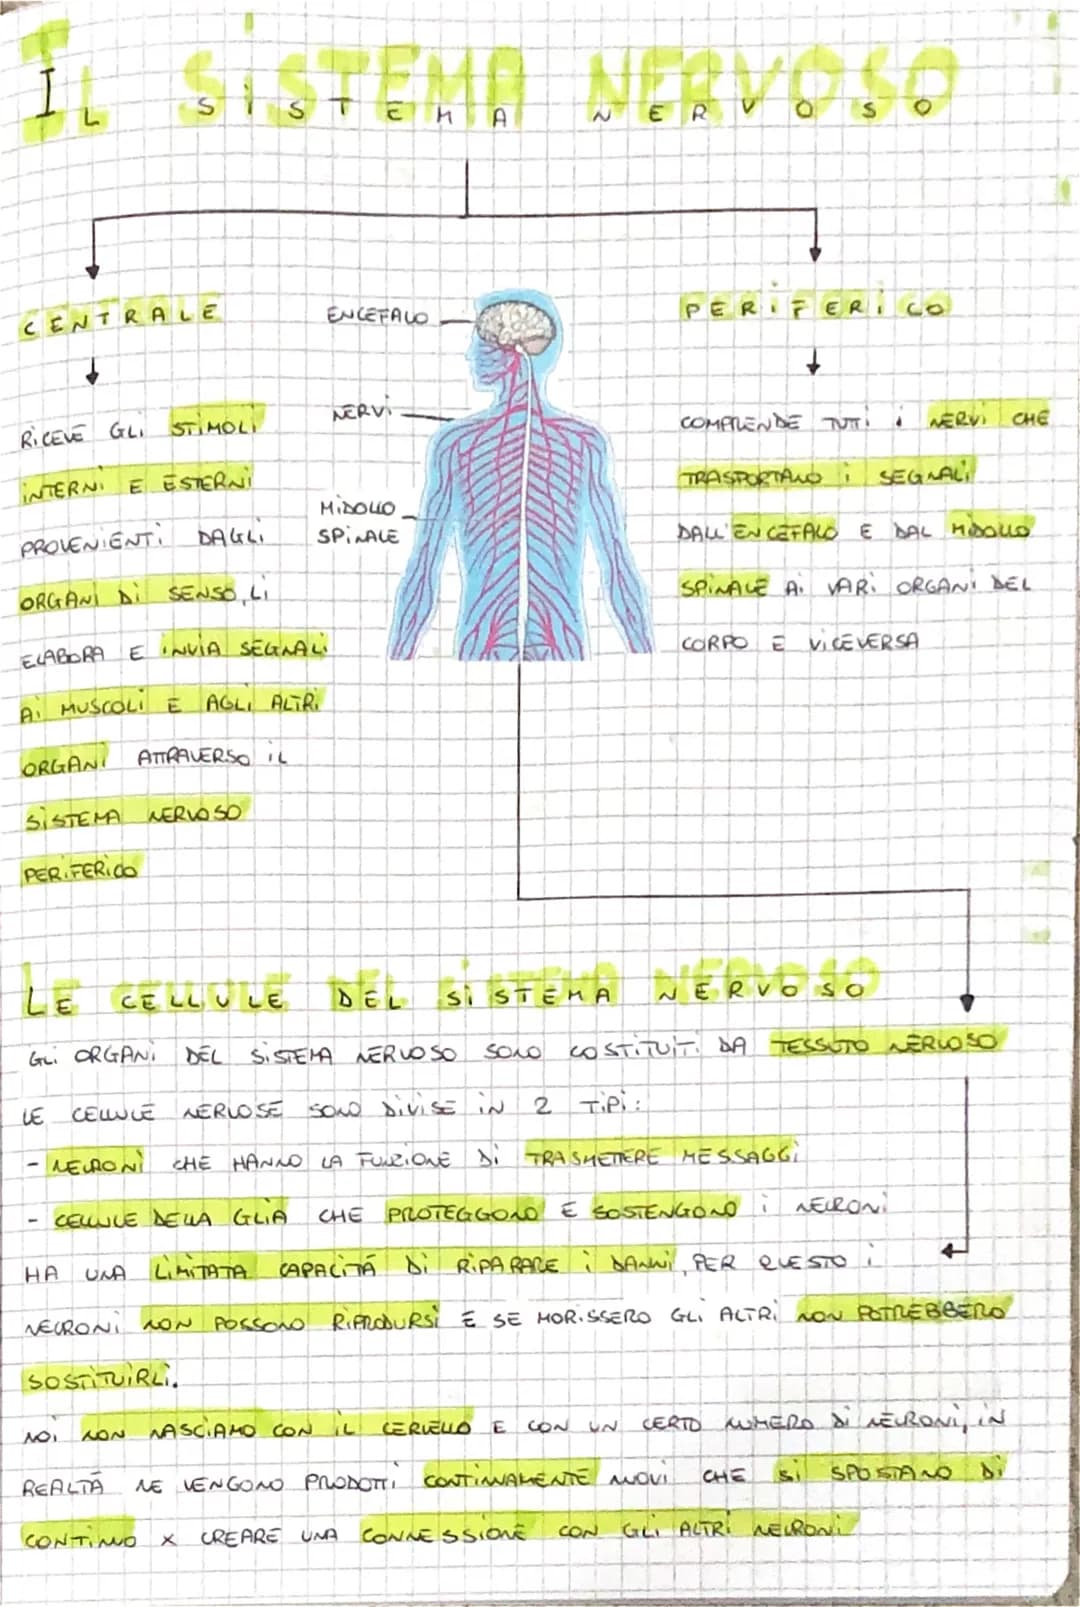 IL SISTEMA NERVOSO
CENTRALE
RICEVE GLI STIMOLI
INTERNI E ESTERNI
PROVENIENTI DAGLI
ORGANI DI SENSO, LI
ELABORA E INVIA SEGNALI
AI MUSCOLI E AGLI ALTRI
ORGANI ATTRAVERSO IL
SISTEMA NERVOSO
PERIFERICO
ENCEFALO
NERVI
MIDOLLO
SPINALE
PERIFERICO
COMPRENDE TUTTI I NERVI CHE
TRASPORTANO I SEGNALI
DALL'ENCEFALO E DAL MIDOLLO
SPINALE AI VARI ORGANI DEL
CORPO E VICEVERSA
LE CELLULE DEL SISTEMA NERVOSO
GLI ORGANI DEL SISTEMA NERVOSO SONO COSTITUITI DA TESSUTO NERVOSO
LE CELLULE NERVOSE SONO DIVISE IN 2 TIPI:
- NEURONI CHE HANNO LA FUNZIONE DI TRASMETTERE MESSAGGI
- CELLULE DELLA GLIA CHE PROTEGGONO E SOSTENGONO I NEURONI
HA UNA LIMITATA CAPACITÀ DI RIPARARE I DANNI, PER QUESTO I
NEURONI NON POSSONO RIPRODURSI E SE MORISSERO GLI ALTRI NON POTREBBERO
SOSTITUIRLI.
NOI NON NASCIAMO CON IL CERVELLO E CON UN CERTO NUMERO DI NEURONI, IN
REALTÀ NE VENGONO PRODOTTI CONTINUAMENTE NUOVI CHE SI SPOSTANO DI
CONTINUO X CREARE UNA CONNESSIONE CON GLI ALTRI NEURONI